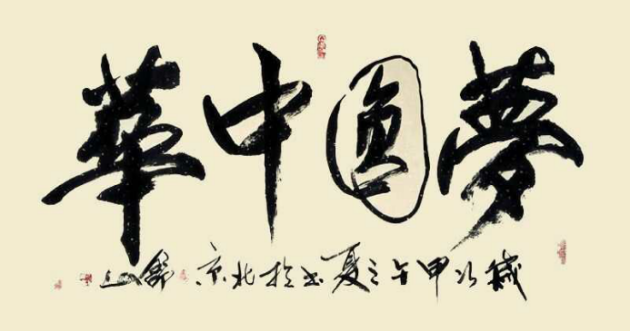 夢圓中華
歲次甲午之夏書於北京